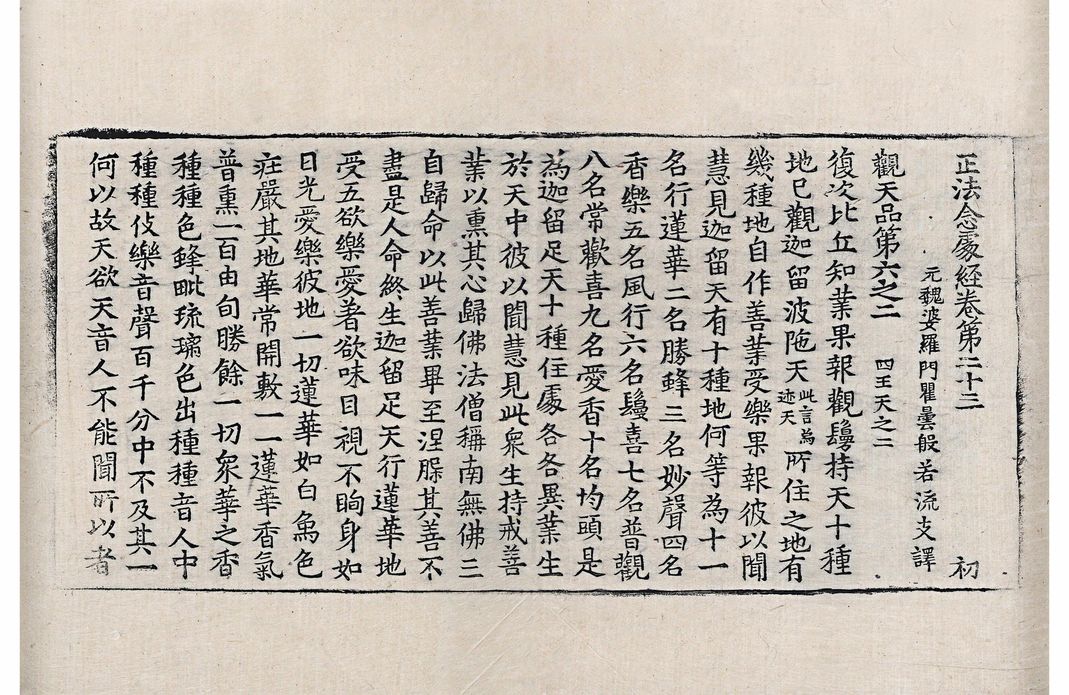 正法念處經卷第二十三 初
元魏婆羅門瞿曇般若流支譯
觀天品第六之二 四王天之二
復次比丘知業果報觀鬘持天十種
地已觀迦留波陁天此言為迹天所住之地有
幾種地自作善業受樂果報彼以聞
慧見迦留天有十種地何等為十一
名行蓮華二名勝蜂三名妙聲四名
香樂五名風行六名鬘喜七名普觀
八名常歡喜九名愛香十名均頭是
為迦留足天十種住處各各異業生
於天中彼以聞慧見此衆生持戒善
業以熏其心歸佛法僧稱南無佛三
自歸命以此善業畢至涅槃其善不
盡是人命終生迦留足天行蓮華地
受五欲樂愛著欲味目視不眴身如
日光愛樂彼地一切蓮華如白魚色
莊嚴其地華常開敷一一蓮華香氣
普熏一百由旬勝餘一切衆華之香
種種色蜂毗琉璃色出種種音人中
種種伎樂音聲百千分中不及其一
何以故天欲天音人不能聞所以者